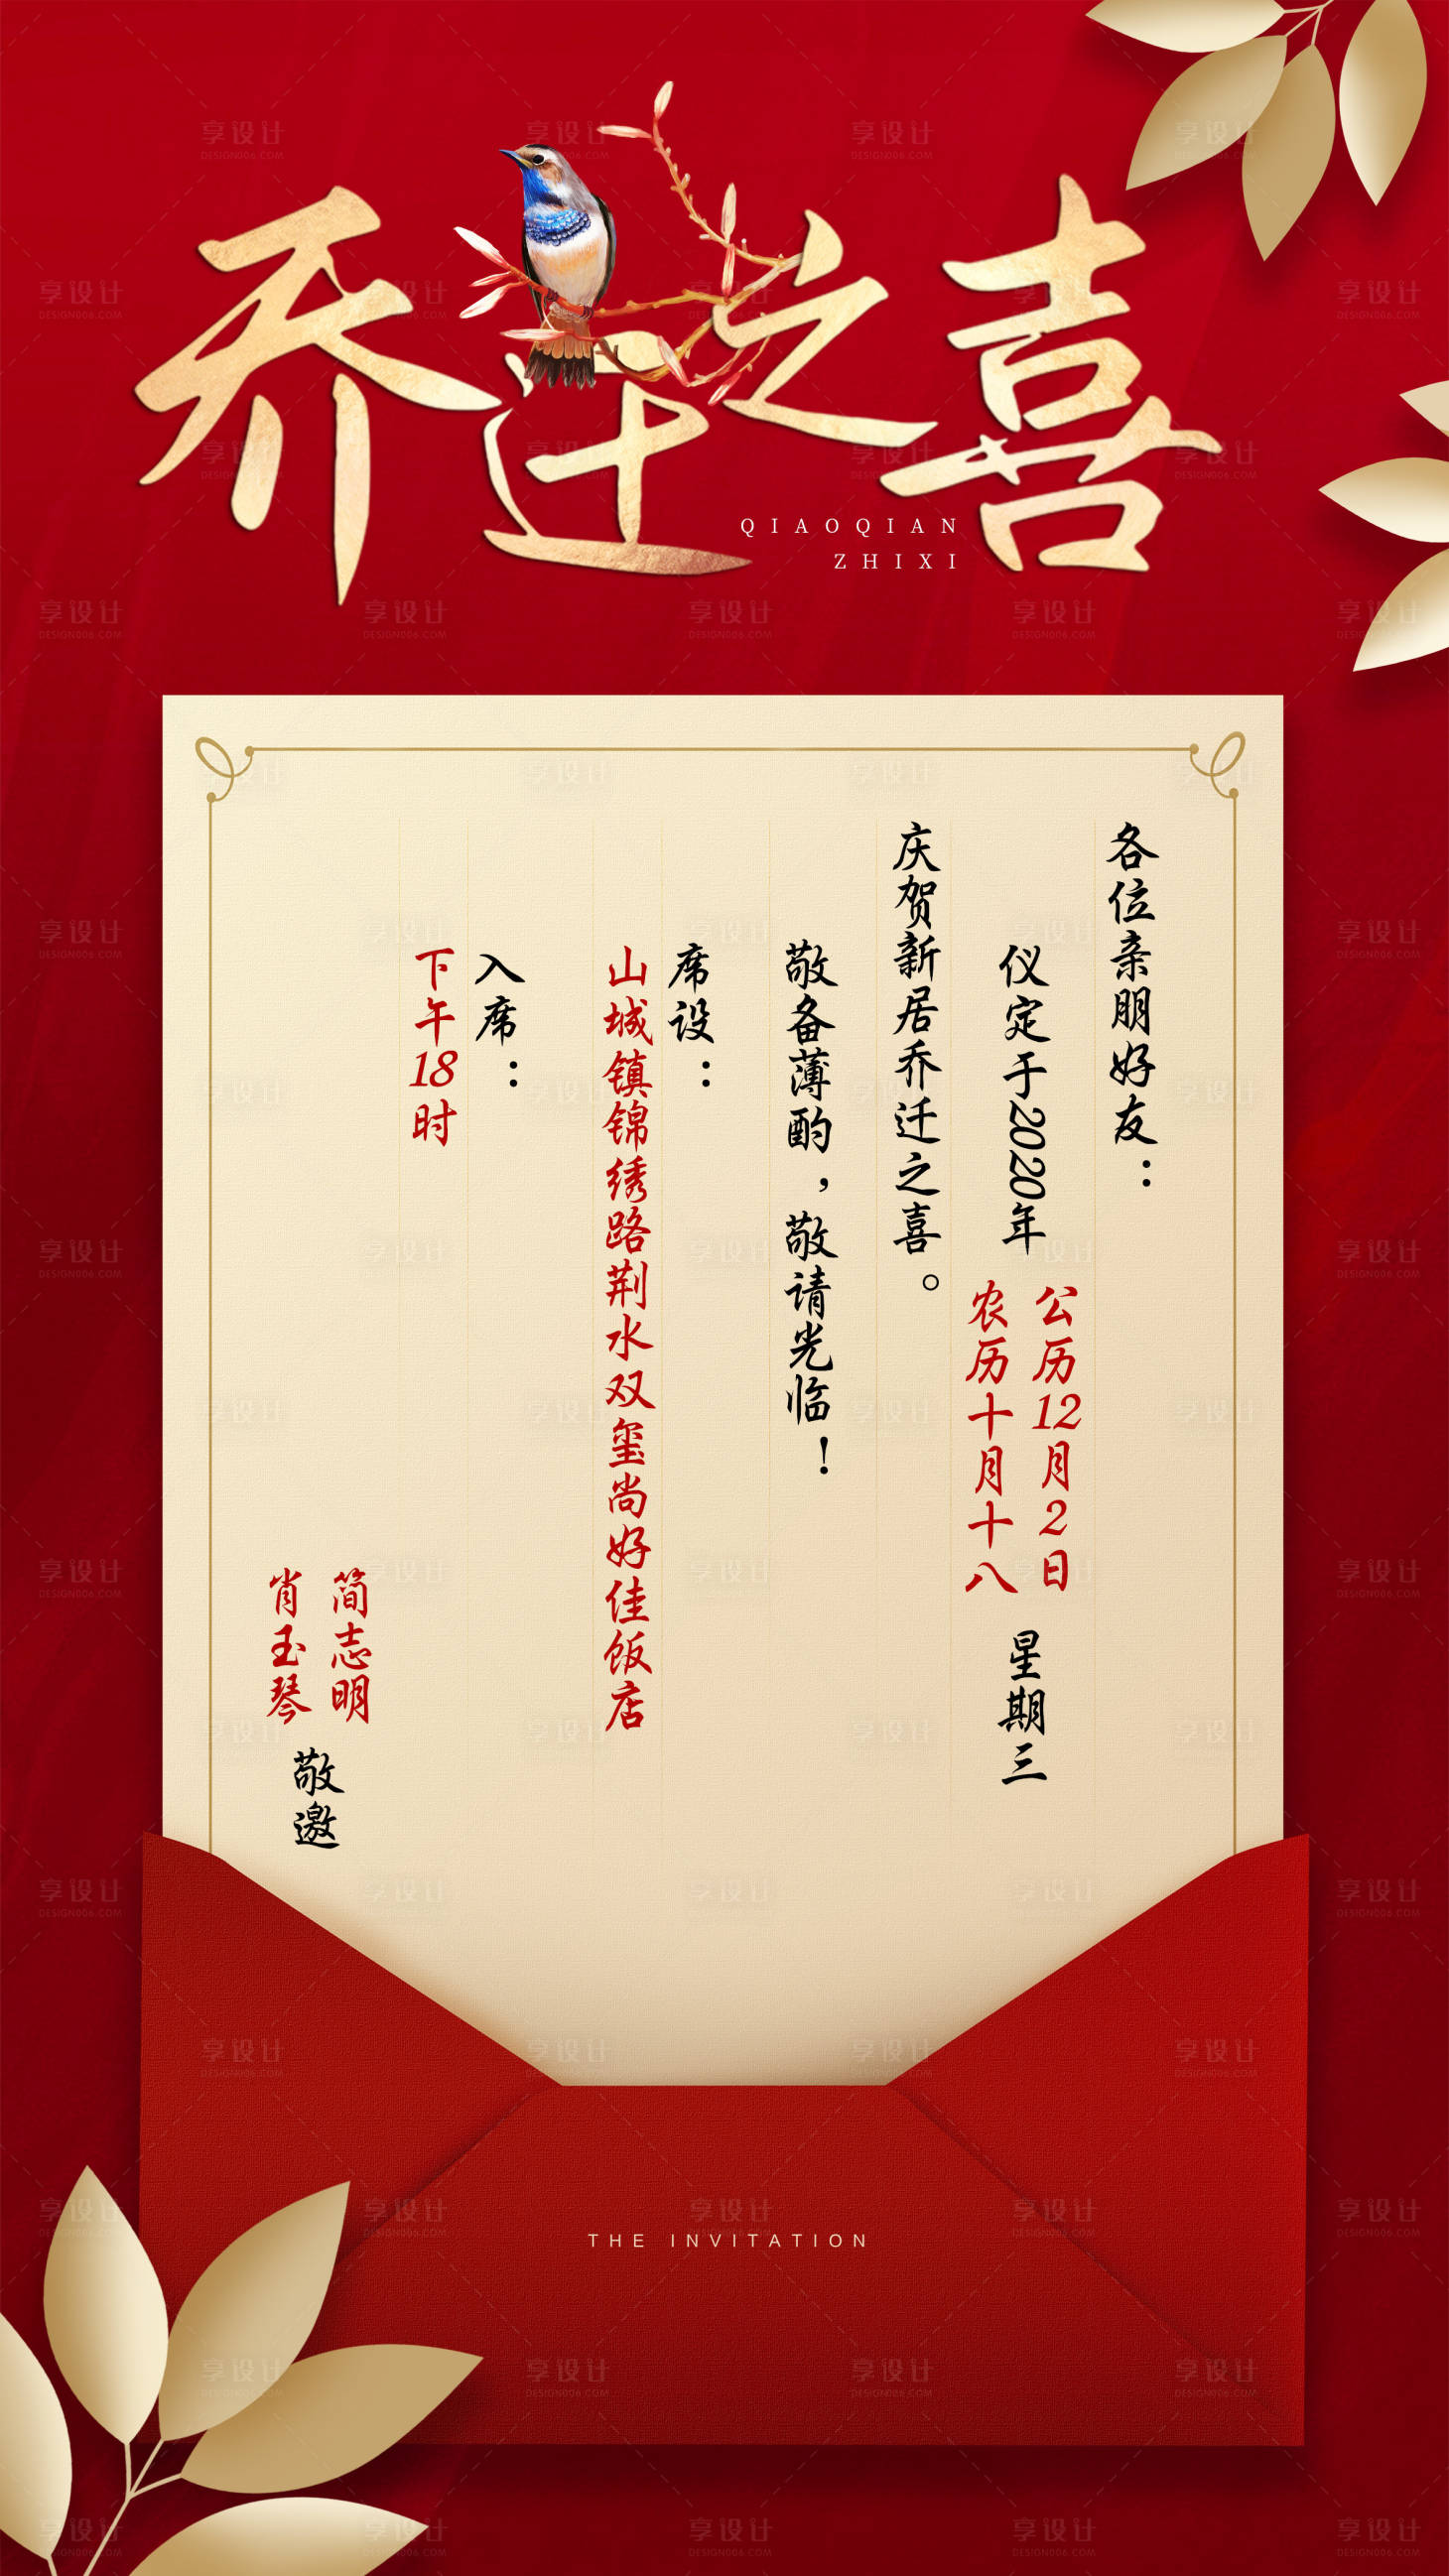 乔迁之喜
QIAOQIAN
ZHIXI
各位亲朋好友：
仪定于2020年
公历12月2日
农历十月十八
星期三
庆贺新居乔迁之喜。
敬备薄酌，敬请光临！
席设：
山城镇锦绣路荆水双玺尚好佳饭店
入席：
下午18时
简志明
肖玉琴
敬邀
THE INVITATION
享设计
DESIGN006.COM